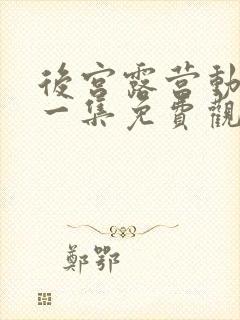 後宮露营動
一集免費觀
鄭鄂